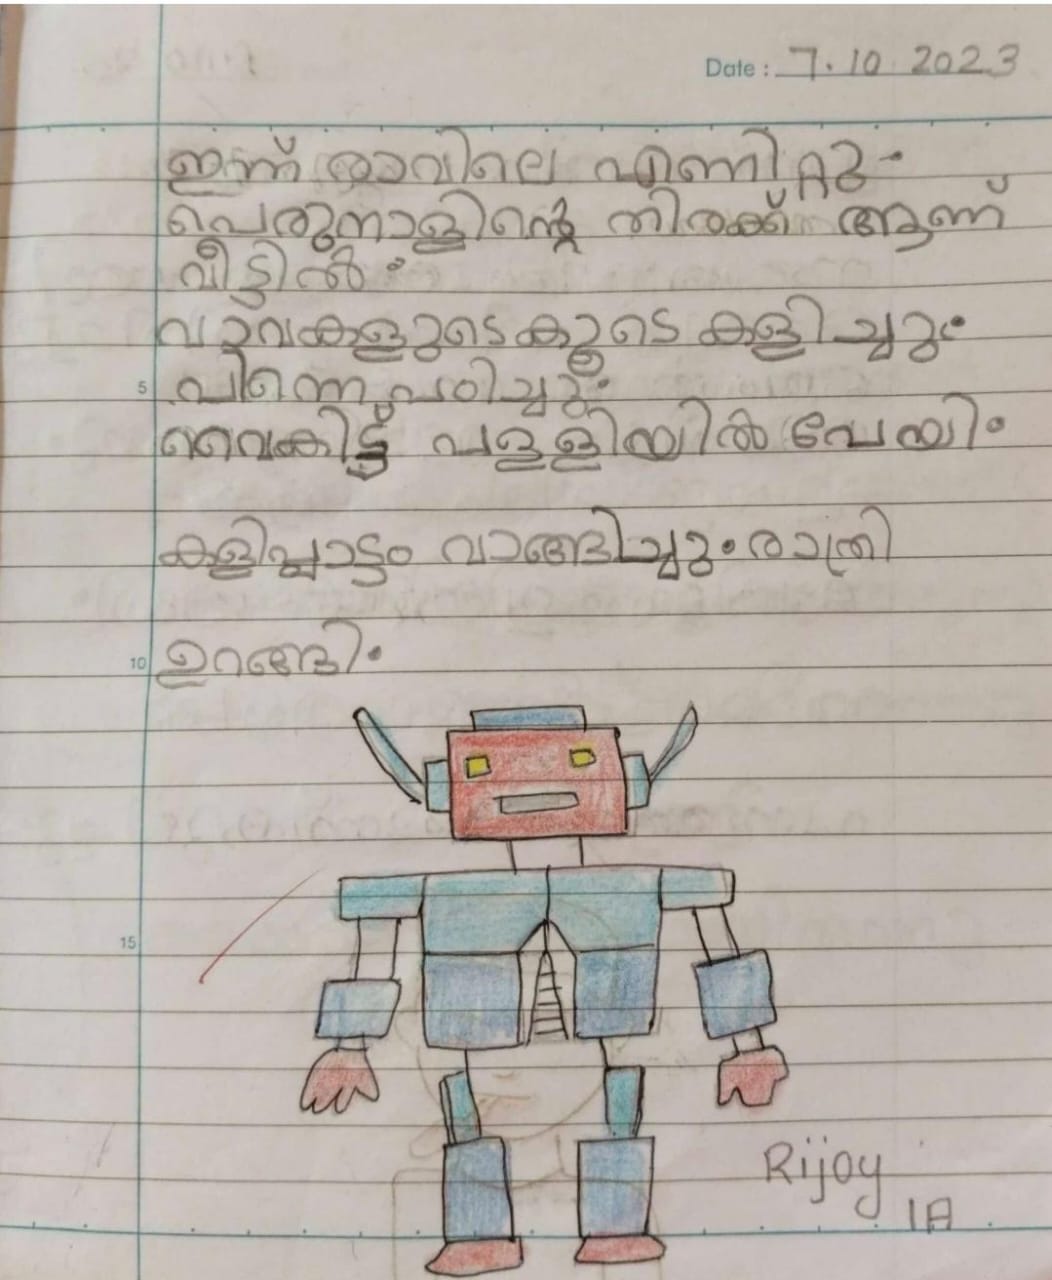 Date : 7.10 2023
ഇന്ന് രാവിലെ എണിറ്റു.
പെരുനാളിന്റെ തിരക്ക് ആണ്
വീട്ടിൽ.
വാവകളുടെ കൂടെ കളിച്ചു.
5 പിന്നെ പഠിച്ചു.
വൈകിട്ട് പള്ളിയിൽ പേയി.
കളിപ്പാട്ടം വാങ്ങിച്ചു. രാത്രി
10 ഉറങ്ങി.
15
Rijoy
1A